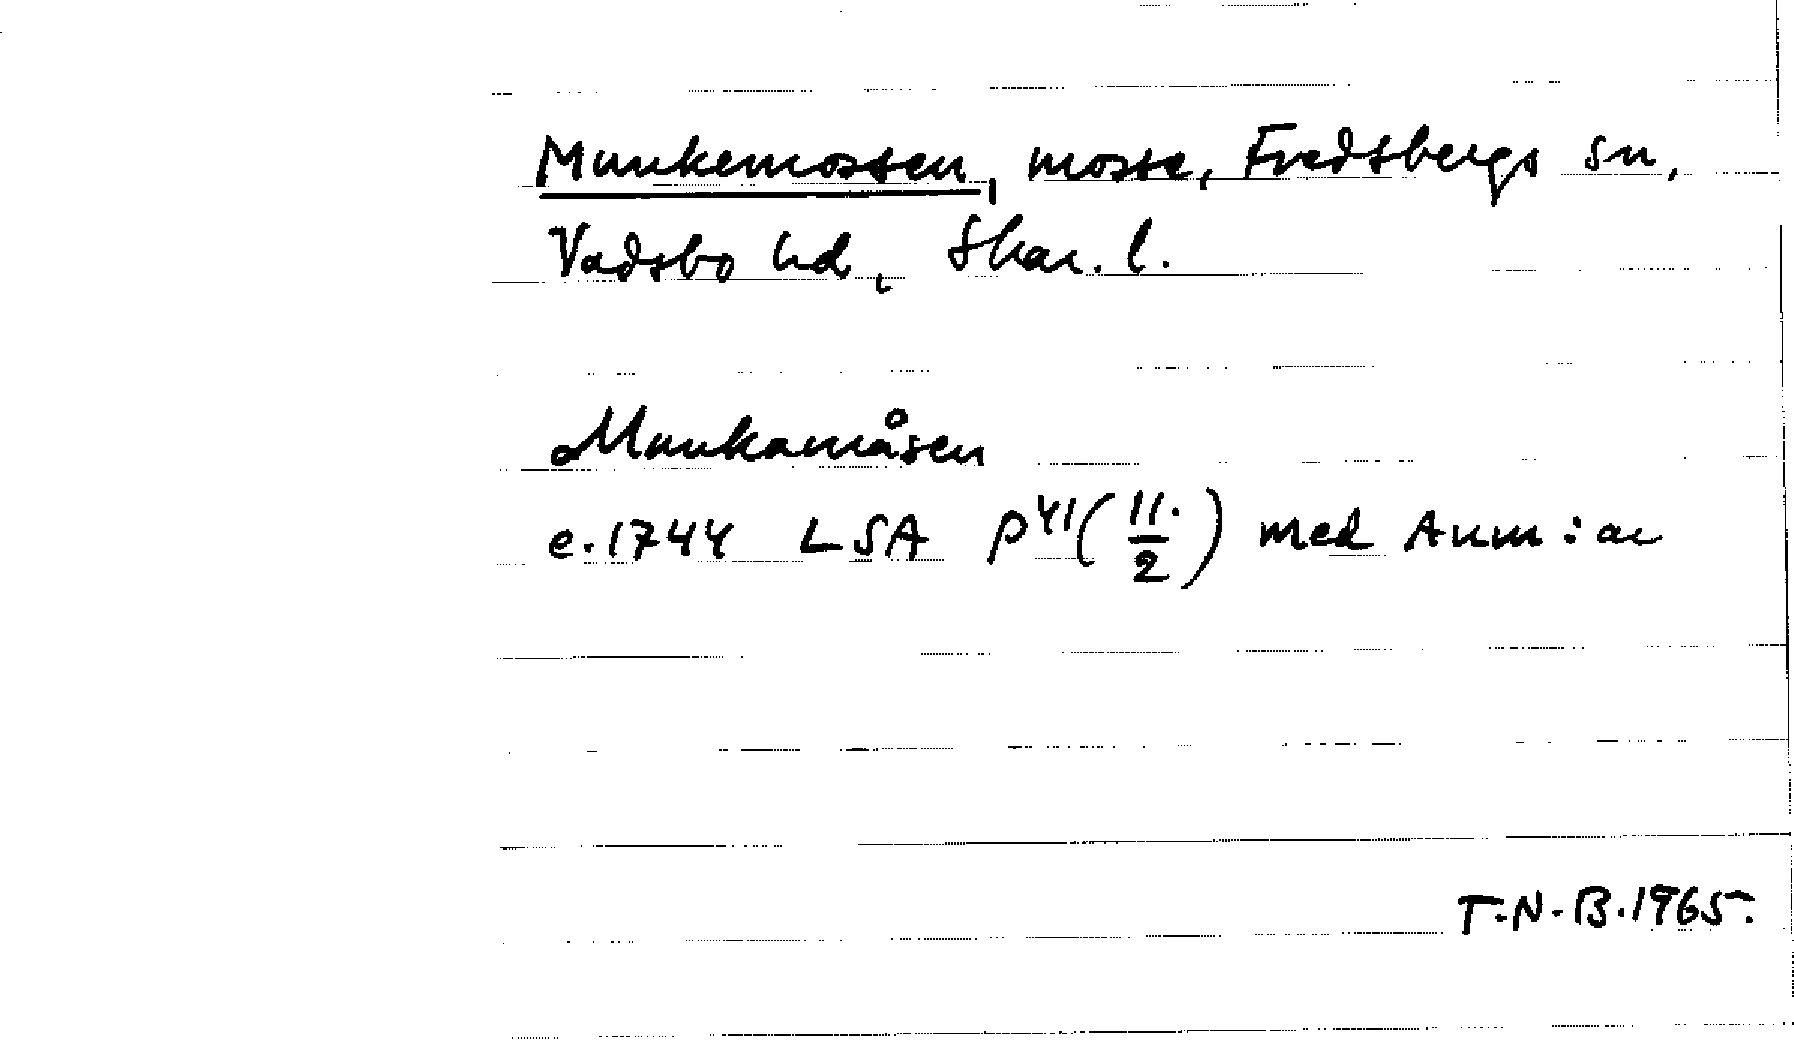 Munkemossen, mosse, Fredsbergs sn,
Vadsbo hd, Skar. l.
Munkamåsen
e. 1744 LSA P41 (11:/2) med Anm:ar
T.N.B. 1965.